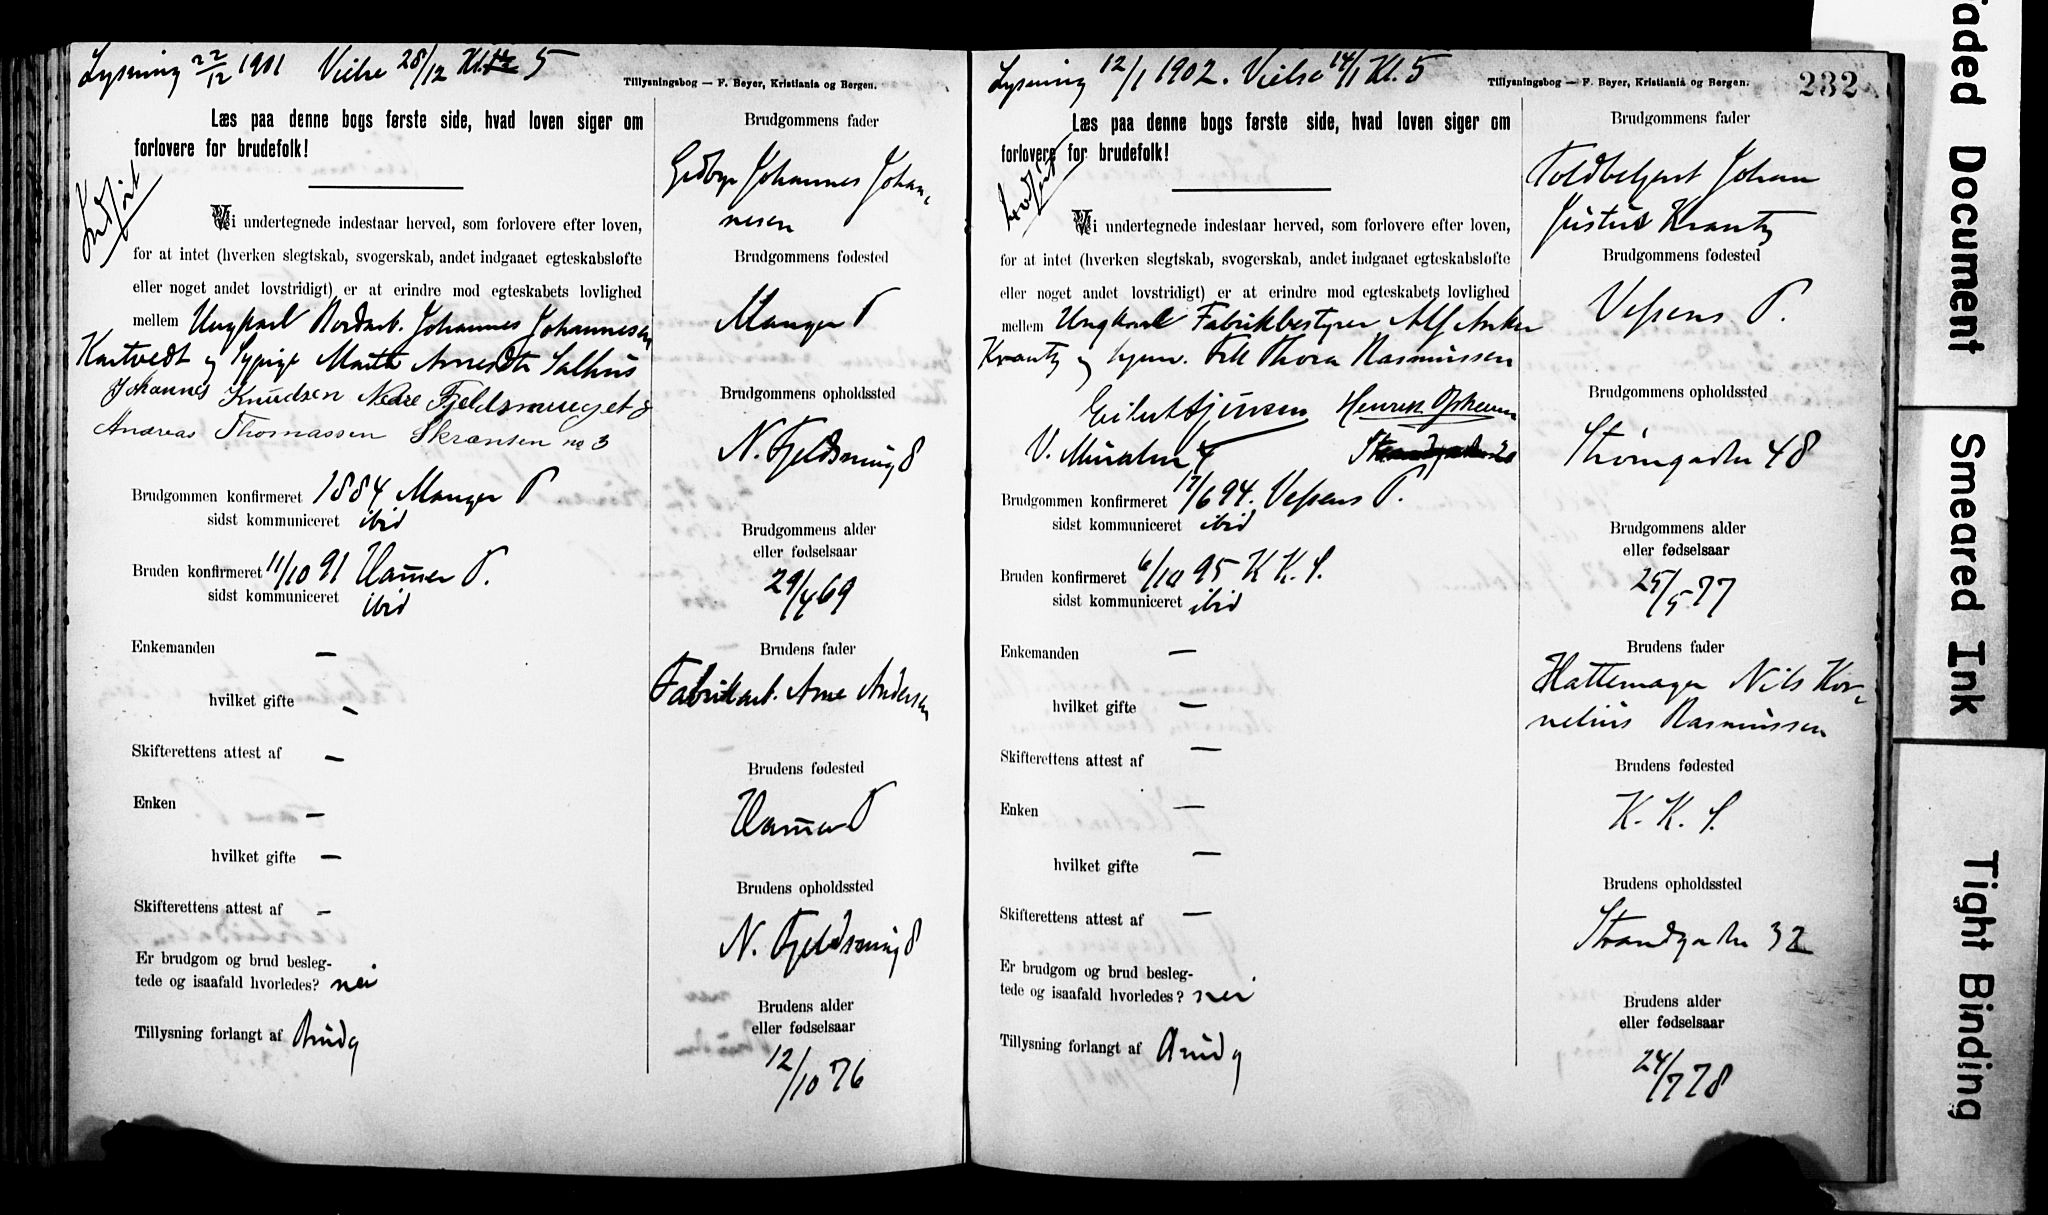 Lysning 22/12 1901 Vielse 28/12 Kl. 5
Tillysningsbog — F. Beyer, Kristiania og Bergen.
Læs paa denne bogs første side, hvad loven siger om
forlovere for brudefolk!
Indført
Vi undertegnede indestaar herved, som forlovere efter loven,
for at intet (hverken slegtskab, svogerskab, andet indgaaet egteskabsløfte
eller noget andet lovstridigt) er at erindre mod egteskabets lovlighed
mellem Ungkarl Nordarb. Johannes Johannesen
Kartvedt og Sypige Marthe Arnesdtr Salhus
Johannes Knudsen Nedre Fjeldsmuget 8
Andreas Thomassen Skrænten no 3
Brudgommen konfirmeret 1884 Manger P
sidst kommuniceret ibid
Bruden konfirmeret 11/10 91 Hamer P.
sidst kommuniceret ibid
Enkemanden —
hvilket gifte —
Skifterettens attest af —
Enken —
hvilket gifte —
Skifterettens attest af —
Er brudgom og brud besleg-
tede og isaafald hvorledes? nei
Tillysning forlangt af Brudg
Brudgommens fader
Grdbr Johannes Johan-
nesen
Brudgommens fødested
Manger P
Brudgommens opholdssted
N. Fjeldsmug 8
Brudgommens alder
eller fødselsaar
29/4 69
Brudens fader
Fabrikarb. Arne Andersen
Brudens fødested
Hamer P
Brudens opholdssted
N. Fjeldsmug 8
Brudens alder
eller fødselsaar
12/10 76
Lysning 12/1 1902. Vielse 14/1 Kl. 5
Tillysningsbog — F. Beyer, Kristiania og Bergen.
232
Læs paa denne bogs første side, hvad loven siger om
forlovere for brudefolk!
Indført
Vi undertegnede indestaar herved, som forlovere efter loven,
for at intet (hverken slegtskab, svogerskab, andet indgaaet egteskabsløfte
eller noget andet lovstridigt) er at erindre mod egteskabets lovlighed
mellem Ungkarl Fabrikbestyrer Alf Anker
Krantz og Frk Thora Rasmussen
V. Muralm 4
Brudgommen konfirmeret 17/6 94. Vefsens P.
sidst kommuniceret ibid
Bruden konfirmeret 6/10 95 K. K. S.
sidst kommuniceret ibid
Enkemanden —
hvilket gifte —
Skifterettens attest af —
Enken —
hvilket gifte —
Skifterettens attest af —
Er brudgom og brud besleg-
tede og isaafald hvorledes? nei
Tillysning forlangt af Brudg
Brudgommens fader
Toldbetjent Johan
Justus Krantz
Brudgommens fødested
Vefsens P.
Brudgommens opholdssted
Strømgaden 48
Brudgommens alder
eller fødselsaar
25/5 77
Brudens fader
Hattemager Nils Kor-
nelius Rasmussen
Brudens fødested
K. K. S.
Brudens opholdssted
Strandgaden 32
Brudens alder
eller fødselsaar
24/7 78
Faded Document
Smeared Ink
Tight Binding